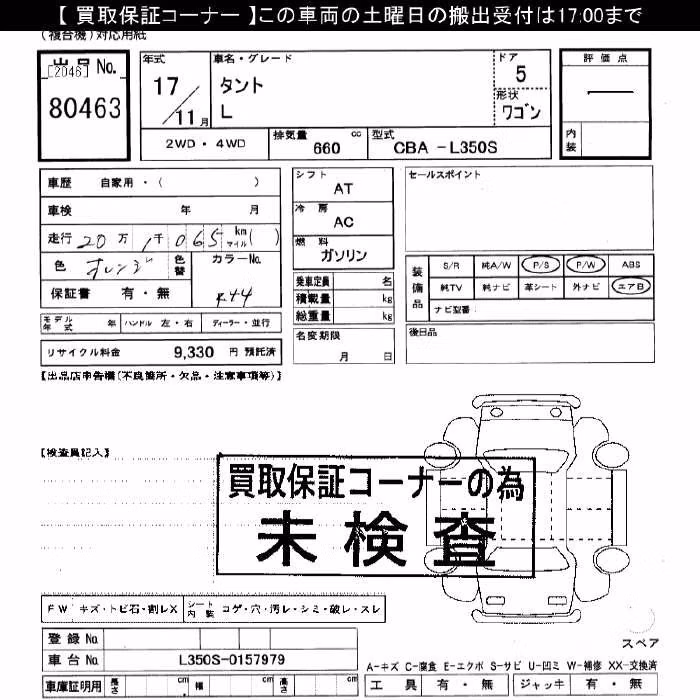 【 買取保証コーナー 】この車両の土曜日の搬出受付は17:00まで
(複合機)対応用紙
出品 No.
[2046]
80463
年式
17
11月
車名・グレード
タント
L
ドア
5
形状
ワゴン
評価点
ー
内装
2WD ・ 4WD
排気量 cc
660
型式
CBA -L350S
車歴 自家用・( )
車検 年 月
走行 20万 1千065 km マイル ( )
色 オレンジ
色替
カラーNo.
R44
保証書 有・無
モデル年式 年 ハンドル 左・右 ディーラー・並行
リサイクル料金 9,330 円 預託済
シフト
AT
冷房
AC
燃料
ガソリン
乗車定員 名
積載量 kg
総重量 kg
名変期限
月 日
セールスポイント
装備品
S/R 純A/W P/S P/W ABS
純TV 純ナビ 革シート 外ナビ エアB
ナビ型番
後日品
【出品店申告欄(不良箇所・欠品・注意事項等)】
【検査員記入】
買取保証コーナーの為
未検査
FW キズ・トビ石・割レX シート内装 コゲ・穴・汚レ・シミ・破レ・スレ
登録 No.
車台 No. L350S-0157979
車庫証明用 長さ cm 幅 cm 高さ cm
スペア
A-キズ C-腐食 E-エクボ S-サビ U-凹ミ W-補修 XX-交換済
工具 有・無 ジャッキ 有・無